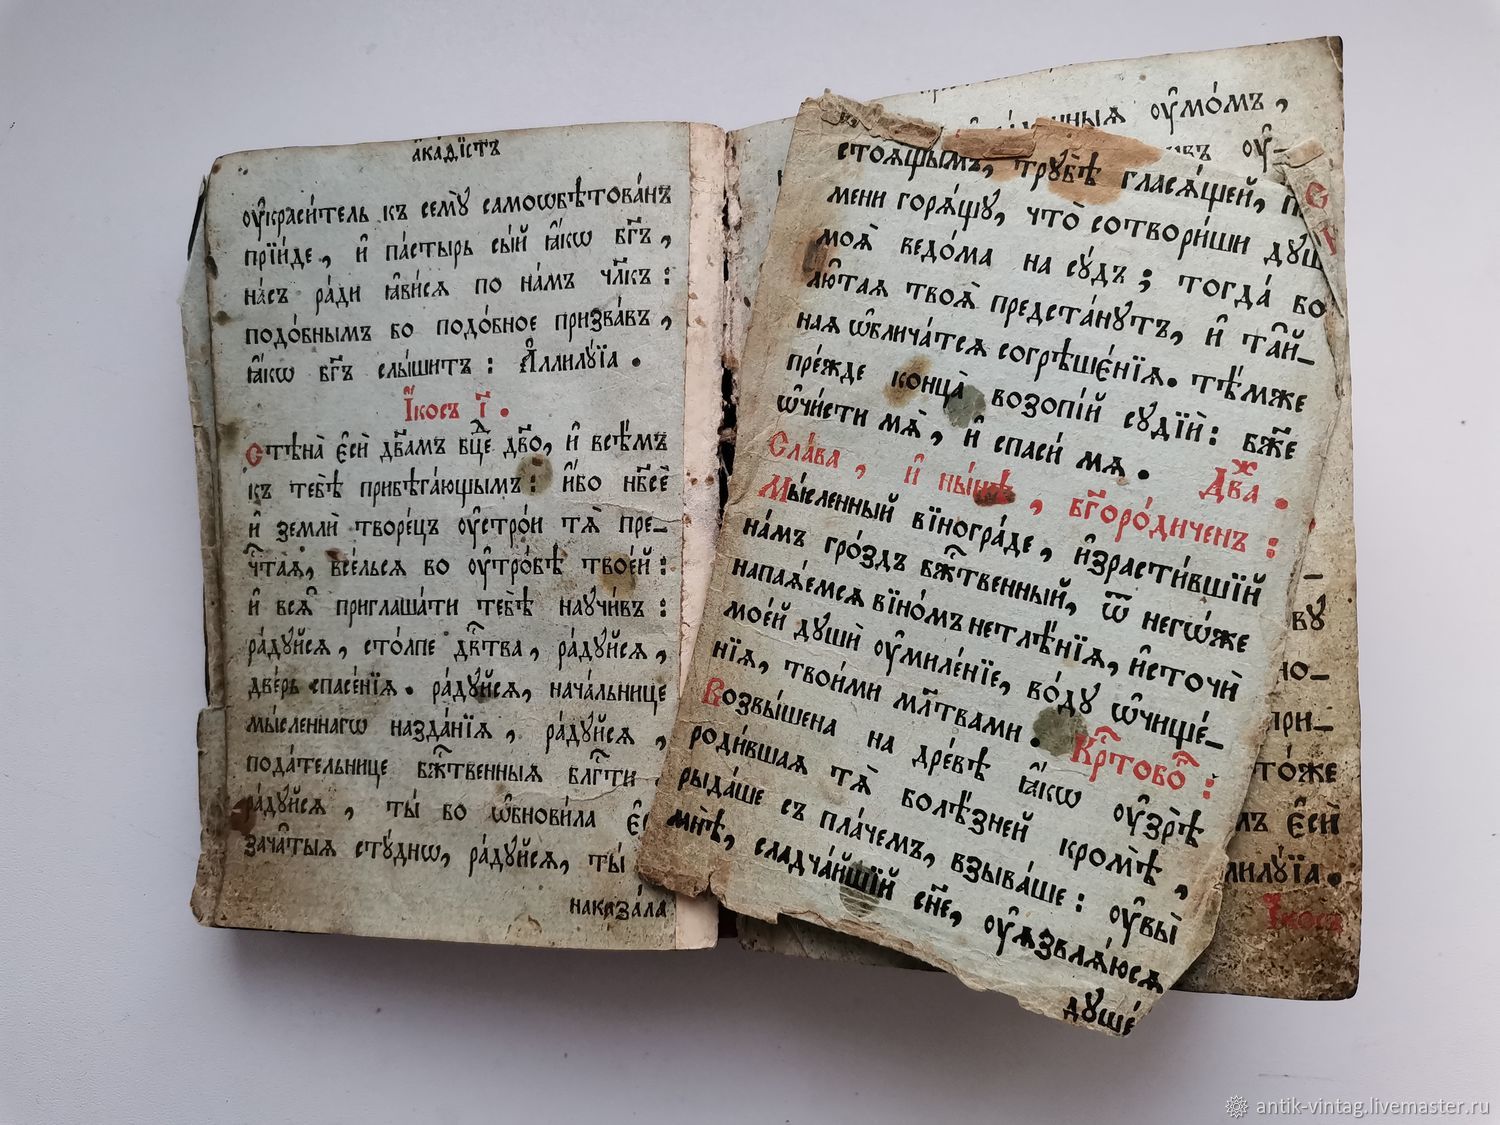 а҆ка́ѳїстъ
ᲂу҆краси́тель къ семꙋ̀ самоѡбѣтова́нъ
прїи́де, и҆ па́стырь сы́й ꙗ҆́кѡ бг҃ъ,
на́съ ра́ди ꙗ҆ви́сѧ по на́мъ чл҃къ:
подо́бнымъ бо подо́бное призва́въ,
ꙗ҆́кѡ бг҃ъ слы́шитъ: А҆ллилꙋ́їа.
І҆́косъ і҃.
Стѣна̀ є҆сѝ дв҃амъ бц҃е дв҃о, и҆ всѣ̑мъ
къ тебѣ̀ прибѣга́ющымъ: и҆́бо нб҃сѐ
и҆ землѝ творе́цъ ᲂу҆стро́и тѧ̀ пре-
чⷭ҇таѧ, все́льсѧ во ᲂу҆тро́бѣ твое́й:
и҆ всѧ̑ приглаша́ти тебѣ̀ научи́въ:
ра́дꙋйсѧ, сто́лпе дв҃ства, ра́дꙋйсѧ,
две́рь спасе́нїѧ. ра́дꙋйсѧ, нача́льнице
мы́сленнагѡ назда́нїѧ, ра́дꙋйсѧ,
пода́тельнице бж҃твенныѧ блг҃сти
ра́дꙋйсѧ, ты́ бо ѡ҆бнови́ла є҆с
зача̑тыѧ стꙋ́днѡ, ра́дꙋйсѧ, ты̀
наказа́ла
ᲂу҆мо́мъ,
стоѧ́щымъ, трꙋбѣ̀ гласѧ́щей,
мени горѧ́щꙋ, что̀ сотвори́ши дꙋш
моѧ̀ ведо́ма на сꙋ́дъ; тогда́ бо
лю̑таѧ твоѧ̑ предста́нꙋтъ, и҆ та̑й-
наѧ ѡ҆блича́тсѧ согрѣшє́нїѧ. тѣ́мже
пре́жде конца̀ возопі́й сꙋдїѝ: бж҃е
ѡ҆чи́сти мѧ̀, и҆ спаси́ мѧ.
Два́ж.
Сла́ва, и҆ ны́нѣ, бг҃оро́диченъ:
Мы́сленный вїногра́де, и҆зрасти́вшїй
на́мъ гро́здъ бж҃твенный, ѿ негѡ́же
напаѧ́емсѧ вїно́мъ нетлѣ́нїѧ, и҆сточѝ
мое́й дꙋшѝ ᲂу҆миле́нїе, во́дꙋ ѡ҆чище́-
нїѧ, твои́ми мл҃твами.
Крⷭ҇тово̑:
Возвы́шена на дре́вѣ ꙗ҆́кѡ ᲂу҆зрѣ̀
роди́вшаѧ тѧ̀ болѣ́зней кромѣ̀,
рыда́ше съ пла́чемъ, взыва́ше: ᲂу҆вы̀
мнѣ̀, сладча́йшїй сн҃е, ᲂу҆ѧзвлѧ́юсѧ
дꙋше́
вꙋ
но-
при-
то́же
є҆сѝ
лилꙋ́їа.
І҆́косъ
antik-vintag.livemaster.ru